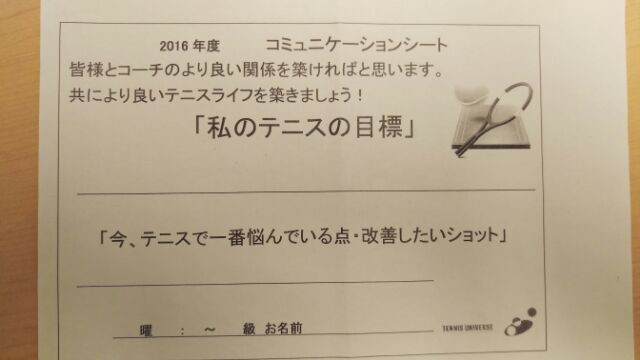 2016 年度 コミュニケーションシート
皆様とコーチのより良い関係を築ければと思います。
共により良いテニスライフを築きましょう！
「私のテニスの目標」
「今、テニスで一番悩んでいる点・改善したいショット」
曜 : ～ 級 お名前
TENNIS UNIVERSE